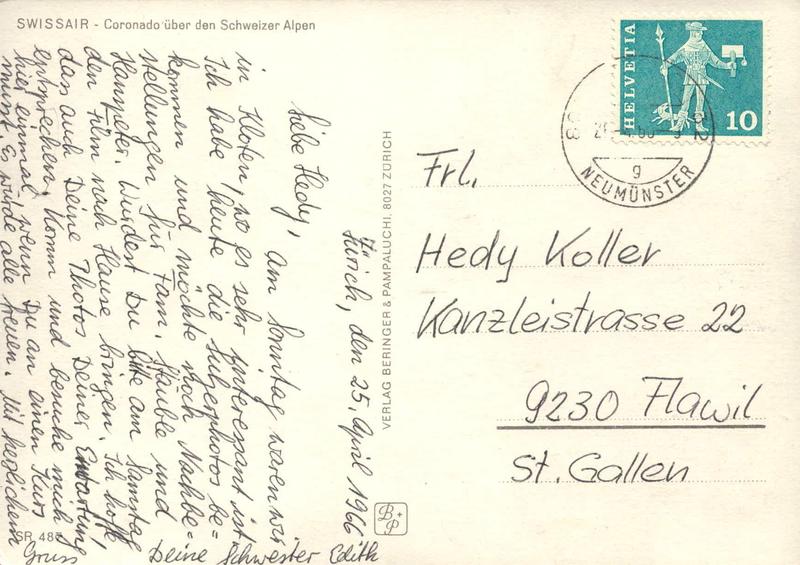 SWISSAIR - Coronado über den Schweizer Alpen
Zürich, den 25. April 1966
Liebe Hedy, Am Sonntag waren wir
in Kloten, wo es sehr interessant ist.
Ich habe heute die Luberphotos be-
kommen und möchte noch Nachbe-
stellungen für Fam. Stäuble und
Hanspeter. Würdest Du bitte am Samstag
den Film nach Hause bringen. Ich hoffe,
das auch Deine Photos Deiner Erwartung
entsprechen. Komm und besuche mich
hier einmal, wenn Du an einen Kurs
musst. Es würde alle freuen. Mit herzlichem
Gruss Deine Schwester Edith
SR 48
VERLAG BERINGER & PAMPALUCHI, 8027 ZÜRICH
B + P
HELVETIA
10
NEUMÜNSTER
g
Frl.
Hedy Koller
Kanzleistrasse 22
9230 Flawil
St. Gallen